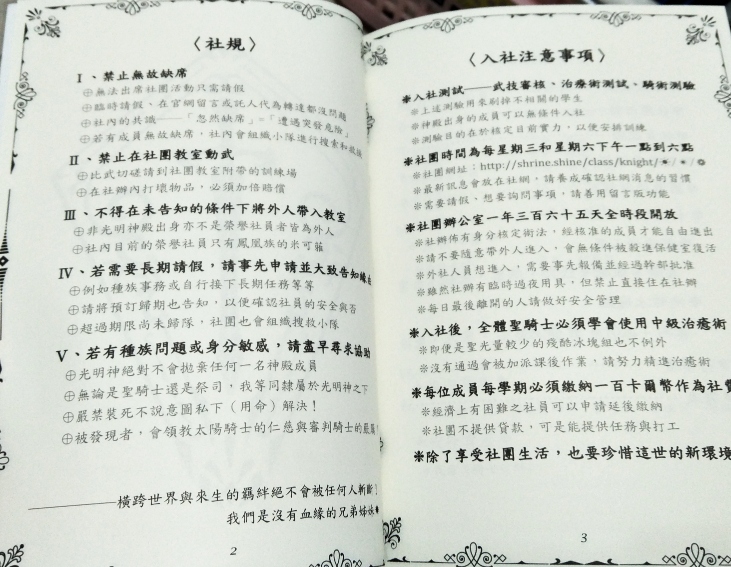 〈社規〉
Ⅰ、禁止無故缺席
⊕無法出席社團活動只需請假
⊕臨時請假、在官網留言或託人代為轉達都沒問題
⊕社內的共識——「忽然缺席」=「遭遇突發危險」
⊕若有成員無故缺席，社內會組織小隊進行搜索和救援
Ⅱ、禁止在社團教室動武
⊕比武切磋請到社團教室附帶的訓練場
⊕在社辦內打壞物品，必須加倍賠償
Ⅲ、不得在未告知的條件下將外人帶入教室
⊕非光明神殿出身亦不是榮譽社員者皆為外人
⊕社內目前的榮譽社員只有鳳凰族的米可蕥
Ⅳ、若需要長期請假，請事先申請並大致告知緣由
⊕例如種族事務或自行接下長期任務等等
⊕請將預訂歸期也告知，以便確認社員的安全與否
⊕超過期限尚未歸隊，社團也會組織搜救小隊
Ⅴ、若有種族問題或身分敏感，請盡早尋求協助
⊕光明神絕對不會拋棄任何一名神殿成員
⊕無論是聖騎士還是祭司，我等同隸屬於光明神之下
⊕嚴禁裝死不說意圖私下（用命）解決！
⊕被發現者，會領教太陽騎士的仁慈與審判騎士的嚴厲
——————橫跨世界與來生的羈絆絕不會被任何人斬斷
我們是沒有血緣的兄弟姊妹
2
〈入社注意事項〉
※入社測試——武技審核、治療術測試、騎術測驗
※上述測驗用來剔掉不相關的學生
※神殿出身的成員可以無條件入社
※測驗目的在於核定目前實力，以便安排訓練
※社團時間為每星期三和星期六下午一點到六點
※社團網址：http://shrine.shine/class/knight/☀/☀/❂
※最新訊息會放在社網，請養成確認社網消息的習慣
※需要請假、想要詢問事項，請善用留言版功能
※社團辦公室一年三百六十五天全時段開放
※社辦佈有身分核定術法，經核准的成員才能自由進出
※請不要隨意帶外人進入，會無條件被殺進保健室復活
※外社人員想進入，需要事先報備並經過幹部批准
※雖然社辦有臨時過夜用具，但禁止直接住在社辦
※每日最後離開的人請做好安全管理
※入社後，全體聖騎士必須學會使用中級治癒術
※即便是聖光量較少的殘酷冰塊組也不例外
※沒有通過會被加派課後作業，請努力精進治癒術
※每位成員每學期必須繳納一百卡爾幣作為社費
※經濟上有困難之社員可以申請延後繳納
※社團不提供貸款，可是能提供任務與打工
※除了享受社團生活，也要珍惜這世的新環境
3